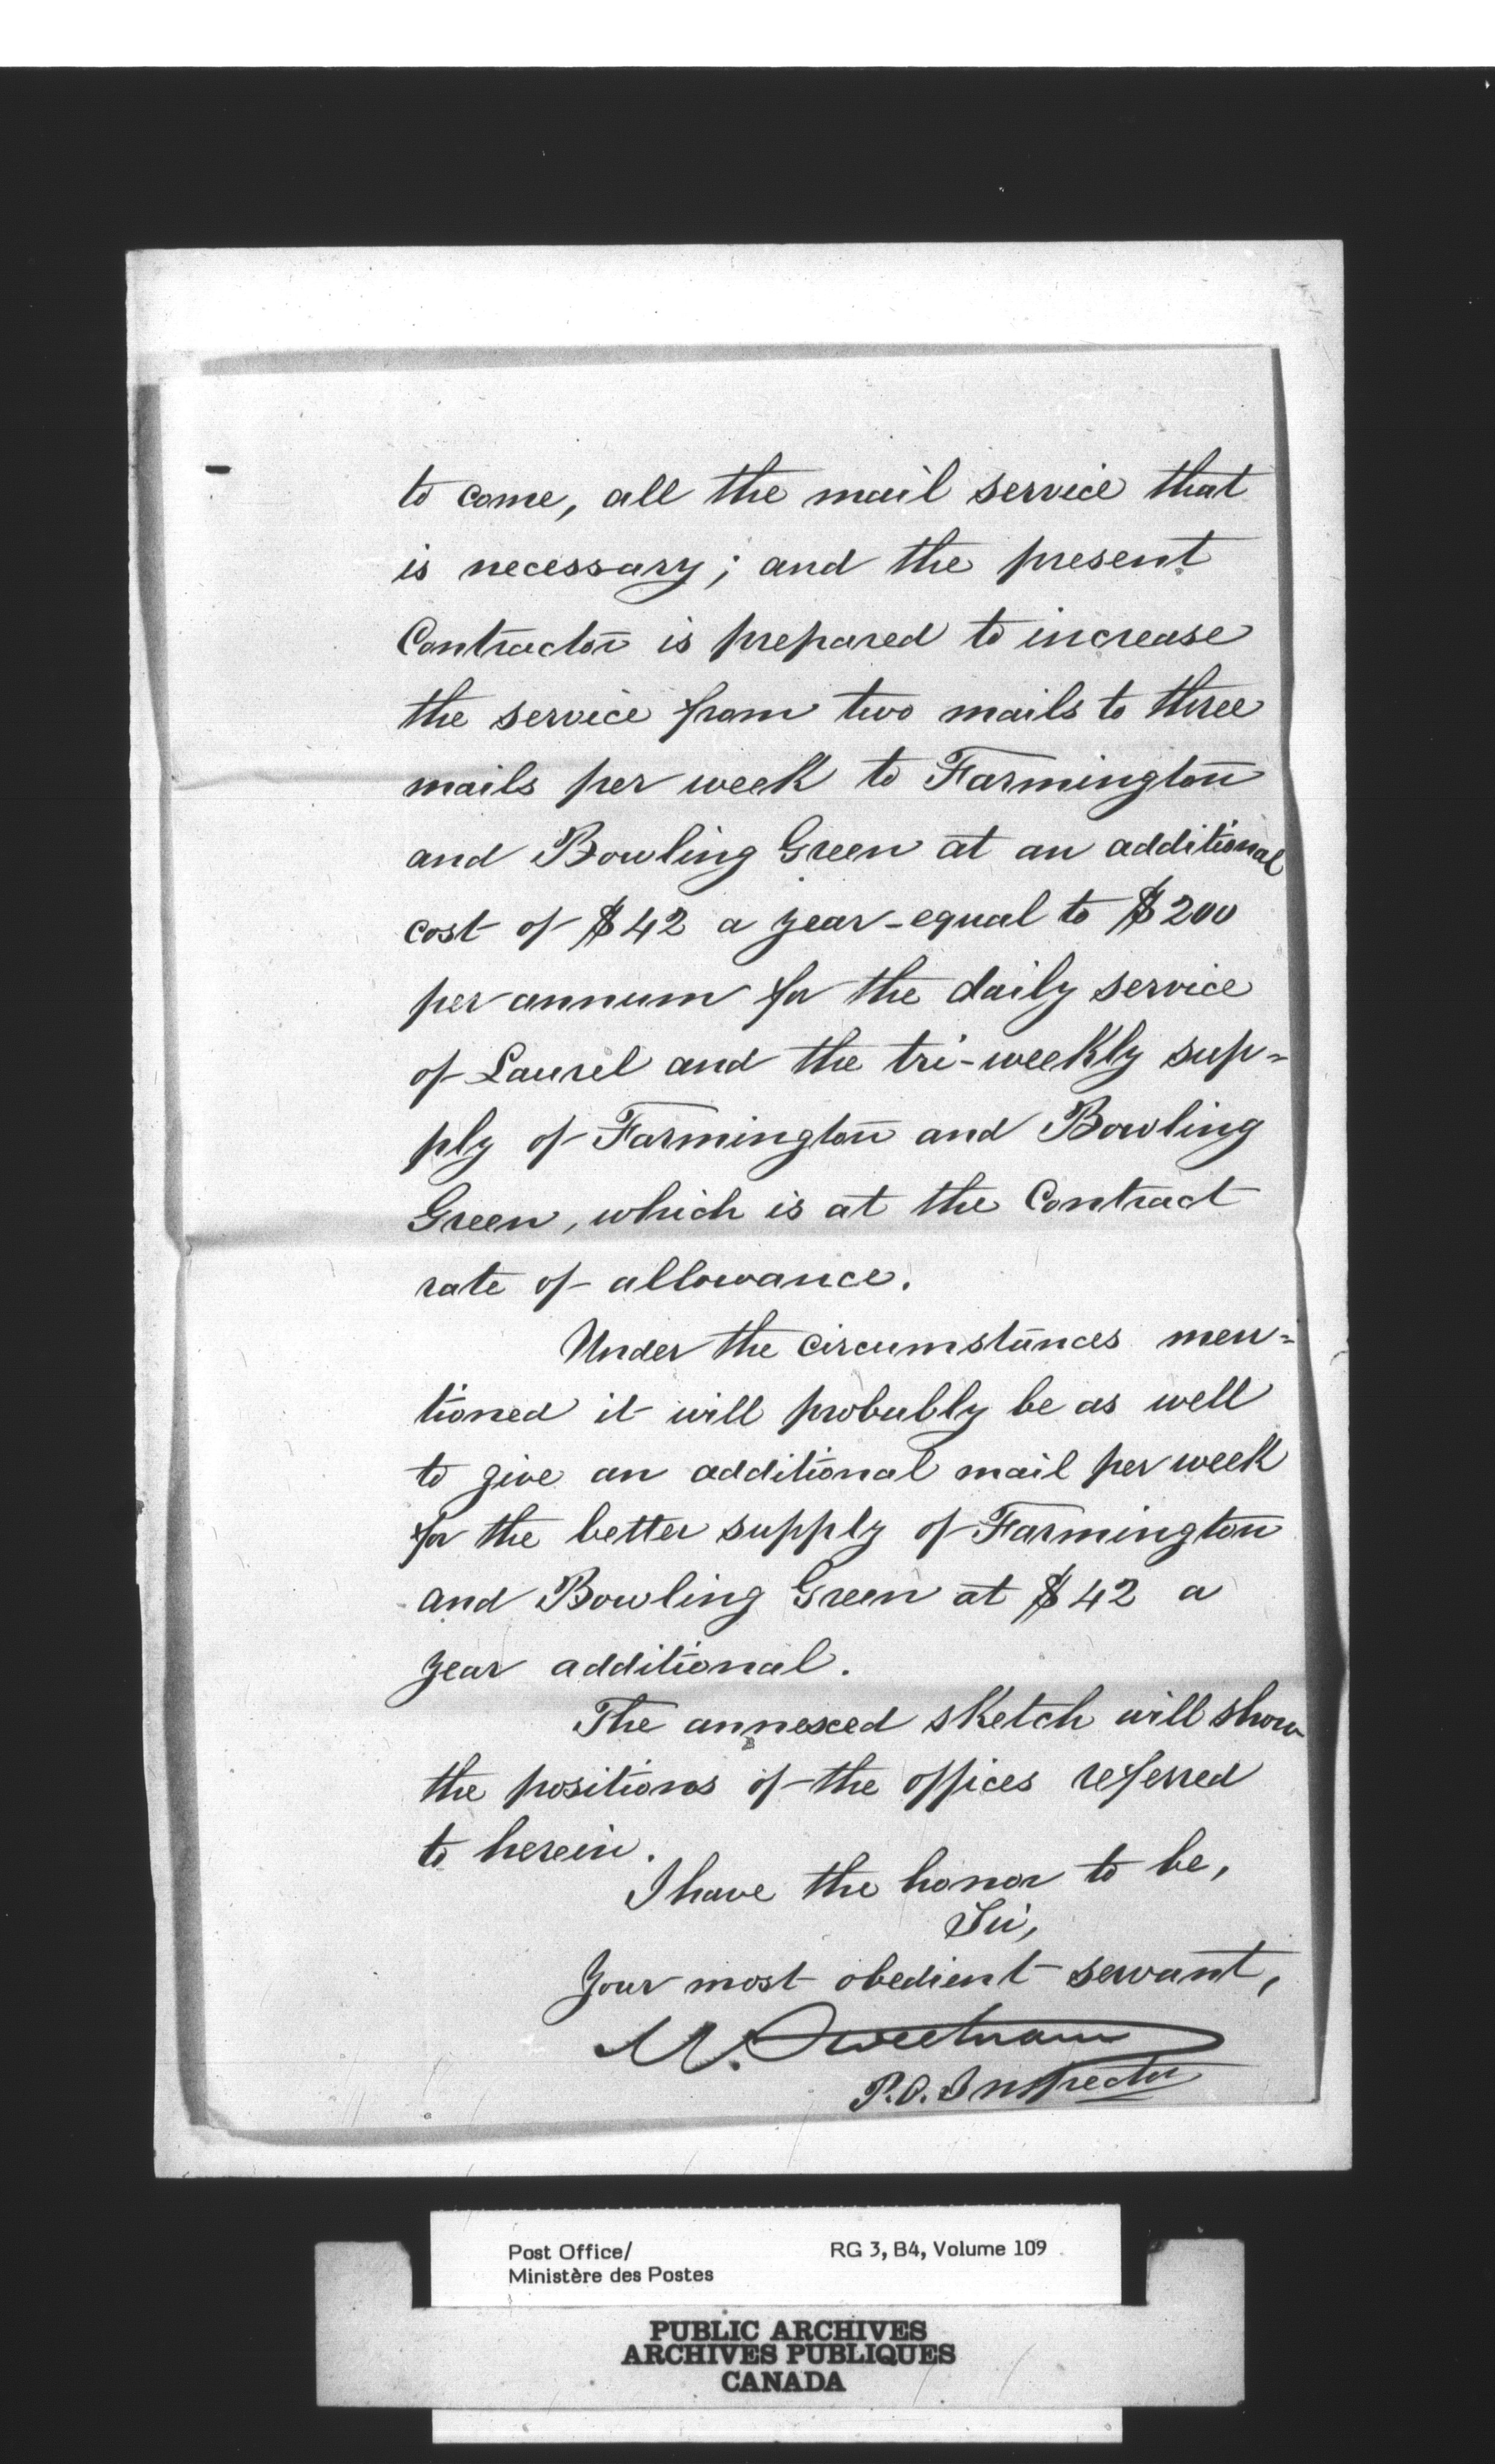 to come, all the mail service that
is necessary; and the present
Contractor is prepared to increase
the service from two mails to three
mails per week to Farmington
and Bowling Green at an additional
cost of $42 a year - equal to $200
per annum for the daily service
of Laurel and the tri-weekly sup=
ply of Farmington and Bowling
Green, which is at the Contract
rate of allowance.
Under the circumstances men=
tioned it will probably be as well
to give an additional mail per week
for the better supply of Farmington
and Bowling Green at $42 a
year additional.
The annexed sketch will show
the positions of the offices referred
to herein.
I have the honor to be,
Sir,
Your most obedient servant,
M. Sweetnam
P.O. Inspector
Post Office/ RG 3, B4, Volume 109
Ministère des Postes
PUBLIC ARCHIVES
ARCHIVES PUBLIQUES
CANADA